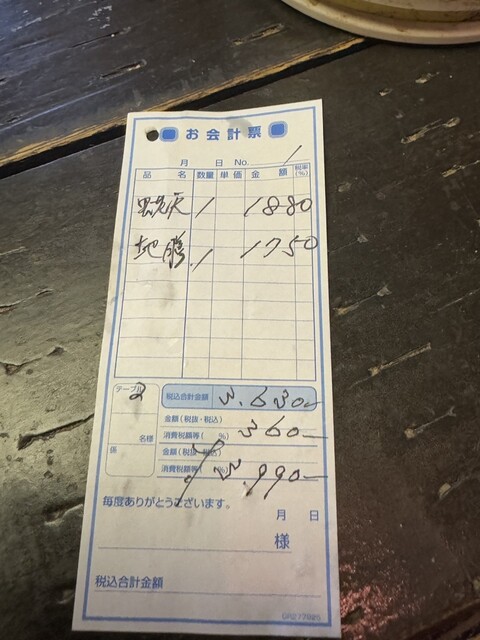 お会計票
月 日 No. 1
品 名 数量 単価 金 額 税率(%)
1 1880
地 1 1750
テーブル 2
税込合計金額 3.630-
名様
係
金額(税抜・税込)
消費税額等( %) 360-
金額(税抜・税込)
消費税額等( %) 3.990-
毎度ありがとうございます。
月 日
様
税込合計金額